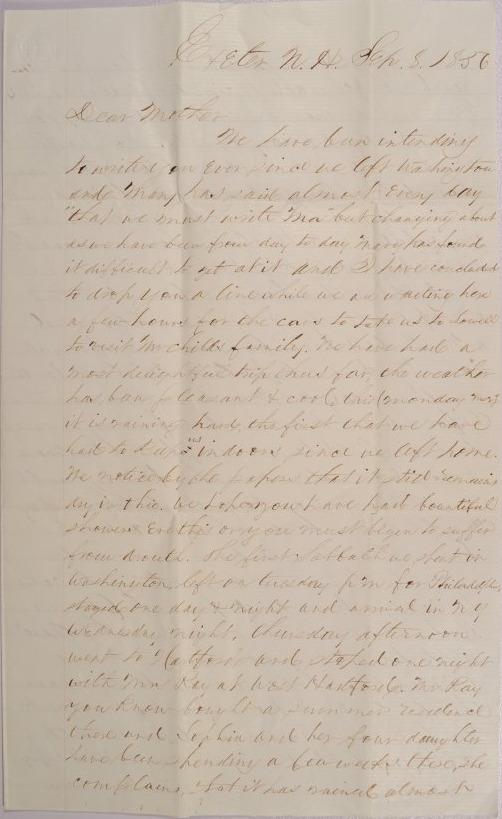 Exeter N. H. Sep. 8. 1856
Dear Mother
We have been intending
to write you ever since we left Washington
and Mary has said almost every day
"that we must write Ma" but changing about
as we have been from day to day Mary has found
it difficult to get at it and I have concluded
to drop you a line while we are waiting here
a few hours for the cars to take us to Lowell
to visit Mr Childs family. We have had a
most delightful trip thus far, the weather
has been pleasant & cool till (monday
it is raining hard, the first that we have
had to keep us indoors since we left home.
We notice by the papers that it still remains
dry in Chic. We hope you have had bountiful
showers Ere this or you must begin to suffer
from drouth. The first Sabbath we spent in
Washington, left on tuesday p m for Philadelphia,
stayed one day & night and arrived in N Y
Wednesday night. Thursday afternoon
went to Hartford and stoped one night
with Mr Kay at West Hartford. Mr Kay
you know bought a summer residence
there and Sophia and her four daughter
have been spending a few weeks there, she
complains, that it has rained almost